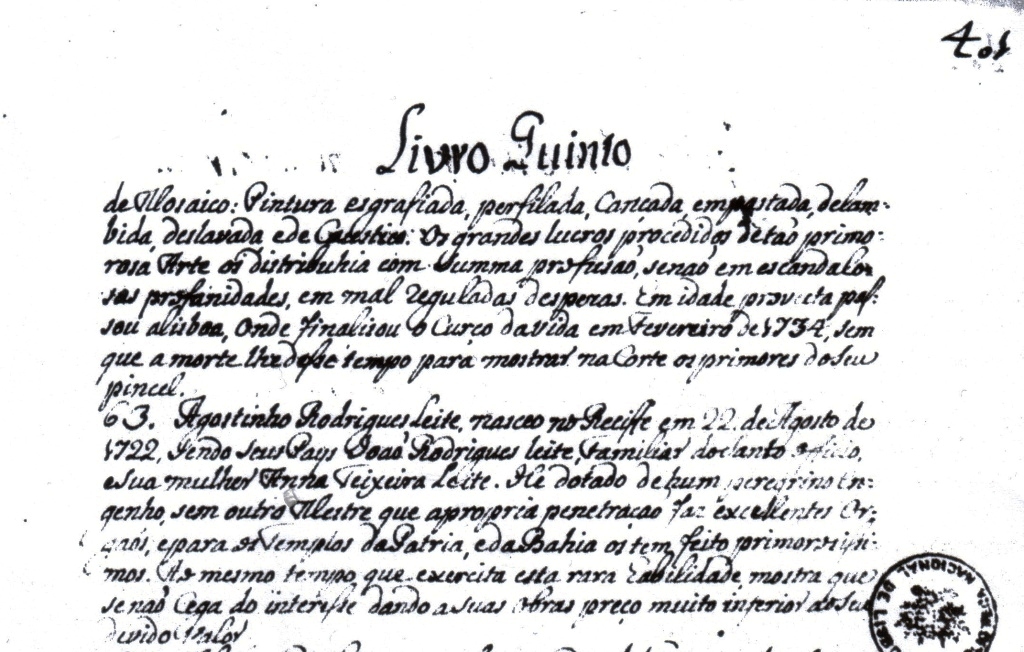 401
Livro Quinto
de Mosaico: Pintura esgrafiada, perfilada, Caricada, empastada, delam-
bida, deslavada e de Caustico. Os grandes lucros procedidos de taõ primo-
rosa Arte os distribuhia com Summa profusaõ, senaõ em escandalo-
sas profanidades, em mal reguladas despezas. Em idade provecta pas-
sou a lisboa, Onde finalisou o Curço da vida em Fevereiro de 1734, sem
que a morte lhe desse tempo para mostrar na Corte os primores do Seu
pincel.
63. Agostinho Rodrigues Leite, nasceo no Reciffe em 22. de Agosto de
1722, Sendo seus Pays Joaõ Rodrigues leite, Familiar do Santo Officio,
e sua mulher Anna Teixeira Leite. He dotado de hum peregrino En-
genho, sem outro Mestre que a propria penetracaõ faz excellentes Or-
gaõs, e para os Templos da Patria, e da Bahia os tem feito primorosissi-
mos. Ao mesmo tempo que exercita esta rara habilidade mostra que
se naõ Cega do interesse dando a suas Obras preço muito inferior ao Seu
devido Valor
NACIONAL DE